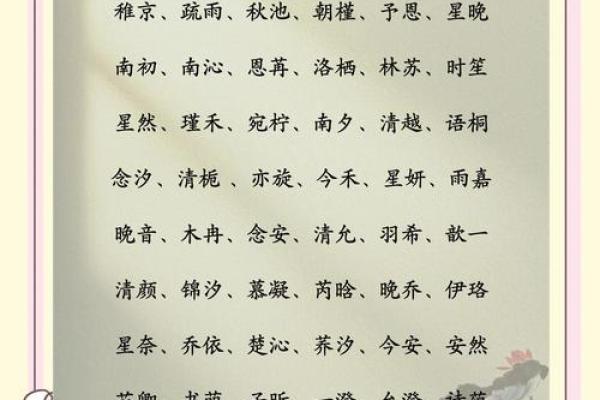 稚京、疏雨、秋池、朝槿、予恩、星晚
南初、南沁、恩苒、洛栖、林苏、时笙
星然、瑾禾、宛柠、南夕、清越、语桐
念汐、清栀 、亦旋、今禾、星妍、雨嘉
晚音、木冉、念安、清允、羽希、歆一
清颜、锦汐、慕凝、芮晗、晚乔、伊珞
星奈、乔依、楚沁、荞汐、今安、安然